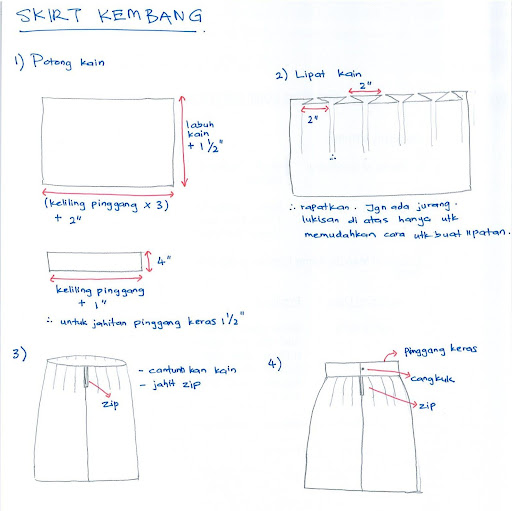 SKIRT KEMBANG
1) Potong kain
labuh
kain
+ 1 1/2"
(keliling pinggang x 3)
+ 2"
4"
keliling pinggang
+ 1"
∴ untuk jahitan pinggang keras 1 1/2"
2) Lipat kain
2"
2"
∴
∴ rapatkan. Jgn ada jurang.
lukisan di atas hanya utk
memudahkan cara utk buat lipatan.
3)
- cantumkan kain
- jahit zip
zip
4)
pinggang keras
cangkuk
zip